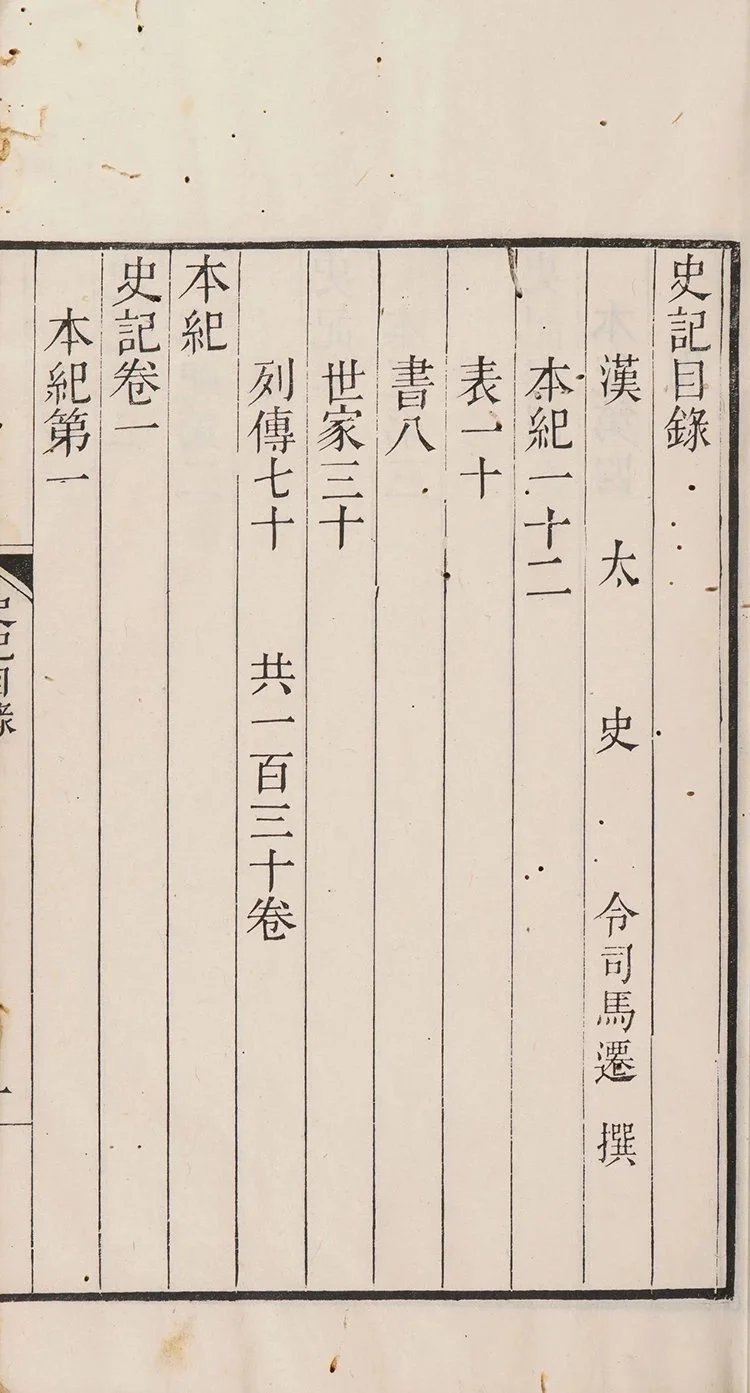 史記目錄
漢太史令司馬遷撰
本紀一十二
表一十
書八
世家三十
列傳七十 共一百三十卷
本紀
史記卷一
本紀第一
史記目錄